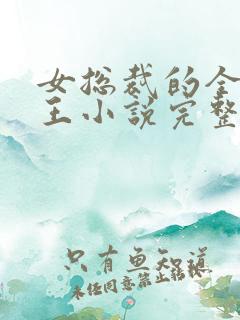 女总裁的全
王小说完整
只有鱼知道
未经同意禁止转载